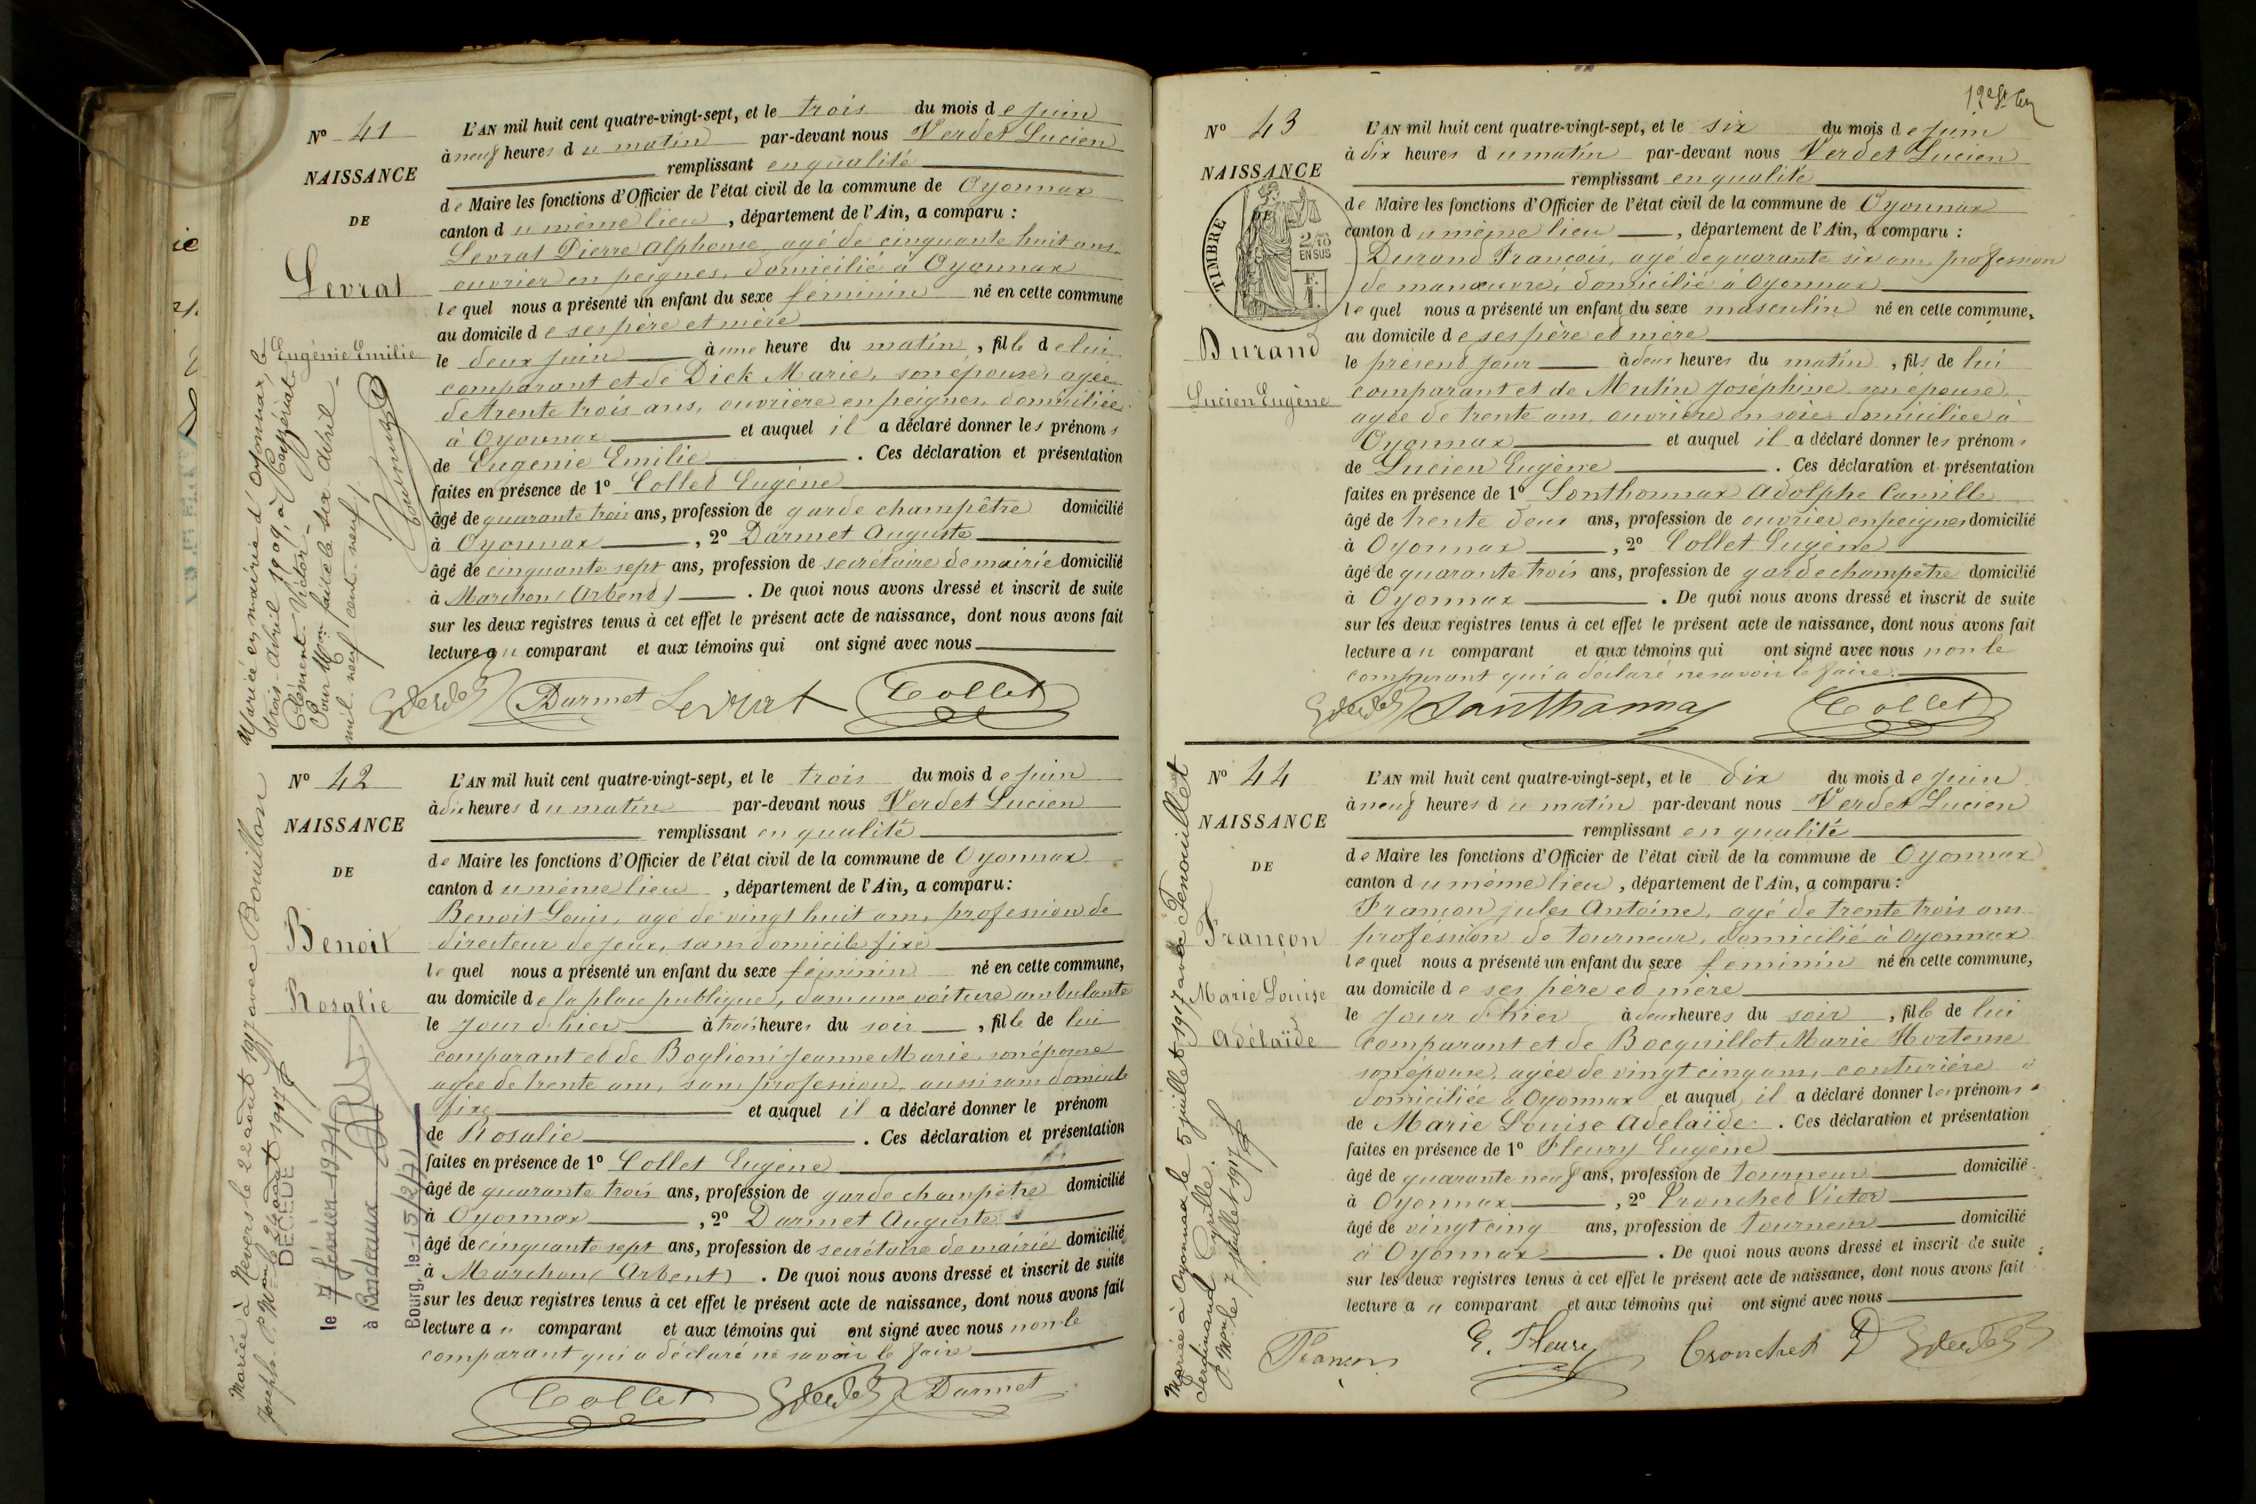 N° 41
NAISSANCE
DE
Levrat
Eugénie Emilie
L'AN mil huit cent quatre-vingt-sept, et le trois du mois de juin
à neuf heures du matin par-devant nous Verdet Lucien
remplissant en qualité
de Maire les fonctions d'Officier de l'état civil de la commune de Oyonnax
canton du même lieu, département de l'Ain, a comparu :
Levrat Pierre Alphonse, agé de cinquante huit ans
ouvrier en peignes, domicilié à Oyonnax
lequel nous a présenté un enfant du sexe féminin né en cette commune
au domicile de ses père et mère
le deux juin à une heure du matin, fille de lui
comparant et de Dick Marie, son épouse, agée
de trente trois ans, ouvrière en peignes, domiciliée
à Oyonnax et auquel il a déclaré donner les prénoms
de Eugénie Emilie. Ces déclaration et présentation
faites en présence de 1° Collet Eugène
âgé de quarante trois ans, profession de garde champêtre domicilié
à Oyonnax, 2° Darmet Auguste
âgé de cinquante sept ans, profession de secrétaire de mairie domicilié
à Marchon (Arbent). De quoi nous avons dressé et inscrit de suite
sur les deux registres tenus à cet effet le présent acte de naissance, dont nous avons fait
lecture au comparant et aux témoins qui ont signé avec nous
Darmet Levrat Collet
Mariée en mairie d'Oyonnax, le
trois avril 1909, à
Clément Victor
Pour Mon faite le six Avril
mil neuf cent neuf
N° 42
NAISSANCE
DE
Benoit
Rosalie
L'AN mil huit cent quatre-vingt-sept, et le trois du mois de juin
à dix heures du matin par-devant nous Verdet Lucien
remplissant en qualité
de Maire les fonctions d'Officier de l'état civil de la commune de Oyonnax
canton du même lieu, département de l'Ain, a comparu :
Benoit Louis, agé de vingt huit ans, profession de
directeur de jeux, sans domicile fixe
lequel nous a présenté un enfant du sexe féminin né en cette commune,
au domicile de la place publique, dans une voiture ambulante
le jour d'hier à trois heures du soir, fille de lui
comparant et de Boglioni Jeanne Marie, son épouse
agée de trente ans, sans profession, aussi sans domicile
fixe et auquel il a déclaré donner le prénom
de Rosalie. Ces déclaration et présentation
faites en présence de 1° Collet Eugène
âgé de quarante trois ans, profession de garde champêtre domicilié
à Oyonnax, 2° Darmet Auguste
âgé de cinquante sept ans, profession de secrétaire de mairie domicilié
à Marchon (Arbent). De quoi nous avons dressé et inscrit de suite
sur les deux registres tenus à cet effet le présent acte de naissance, dont nous avons fait
lecture au comparant et aux témoins qui ont signé avec nous non le
comparant qui a déclaré ne savoir le faire
Collet Darmet
Mariée à Nevers le 22 août 1917 avec Bouillon
Joseph. P. Mon le 24 août 1917
DÉCÉDÉE
le 7 février 1971
à Bordeaux
Bourg, le 15/2/71
12e et der
N° 43
NAISSANCE
TIMBRE
2/10 EN SUS
Durand
Lucien Eugène
L'AN mil huit cent quatre-vingt-sept, et le six du mois de juin
à dix heures du matin par-devant nous Verdet Lucien
remplissant en qualité
de Maire les fonctions d'Officier de l'état civil de la commune de Oyonnax
canton du même lieu, département de l'Ain, a comparu :
Durand François, agé de quarante six ans, profession
de manœuvre, domicilié à Oyonnax
lequel nous a présenté un enfant du sexe masculin né en cette commune,
au domicile de ses père et mère
le présent jour à deux heures du matin, fils de lui
comparant et de Mutin Joséphine son épouse,
agée de trente ans, ouvrière en soie domiciliée à
Oyonnax et auquel il a déclaré donner les prénoms
de Lucien Eugène. Ces déclaration et présentation
faites en présence de 1° Sonthonnax Adolphe Camille
âgé de trente deux ans, profession de ouvrier en peignes domicilié
à Oyonnax, 2° Collet Eugène
âgé de quarante trois ans, profession de garde champêtre domicilié
à Oyonnax. De quoi nous avons dressé et inscrit de suite
sur les deux registres tenus à cet effet le présent acte de naissance, dont nous avons fait
lecture au comparant et aux témoins qui ont signé avec nous non le
comparant qui a déclaré ne savoir le faire.
Sonthonnax Collet
N° 44
NAISSANCE
DE
Françon
Marie Louise
Adélaïde
L'AN mil huit cent quatre-vingt-sept, et le dix du mois de juin
à neuf heures du matin par-devant nous Verdet Lucien
remplissant en qualité
de Maire les fonctions d'Officier de l'état civil de la commune de Oyonnax
canton du même lieu, département de l'Ain, a comparu :
Françon Jules Antoine, agé de trente trois ans
profession de tourneur, domicilié à Oyonnax
lequel nous a présenté un enfant du sexe féminin né en cette commune,
au domicile de ses père et mère
le jour d'hier à deux heures du soir, fille de lui
comparant et de Bocquillot Marie Hortense
son épouse, agée de vingt cinq ans, couturière
domiciliée à Oyonnax et auquel il a déclaré donner les prénoms
de Marie Louise Adélaïde. Ces déclaration et présentation
faites en présence de 1° Fleury Eugène
âgé de quarante neuf ans, profession de tourneur domicilié
à Oyonnax, 2° Cronchet Victor
âgé de vingt cinq ans, profession de tourneur domicilié
à Oyonnax. De quoi nous avons dressé et inscrit de suite
sur les deux registres tenus à cet effet le présent acte de naissance, dont nous avons fait
lecture au comparant et aux témoins qui ont signé avec nous
Françon E. Fleury Cronchet
Mariée à Oyonnax le 5 juillet 1917 avec Fenouillet
Ferdinand Cyrille.
P. Mon le 7 juillet 1917